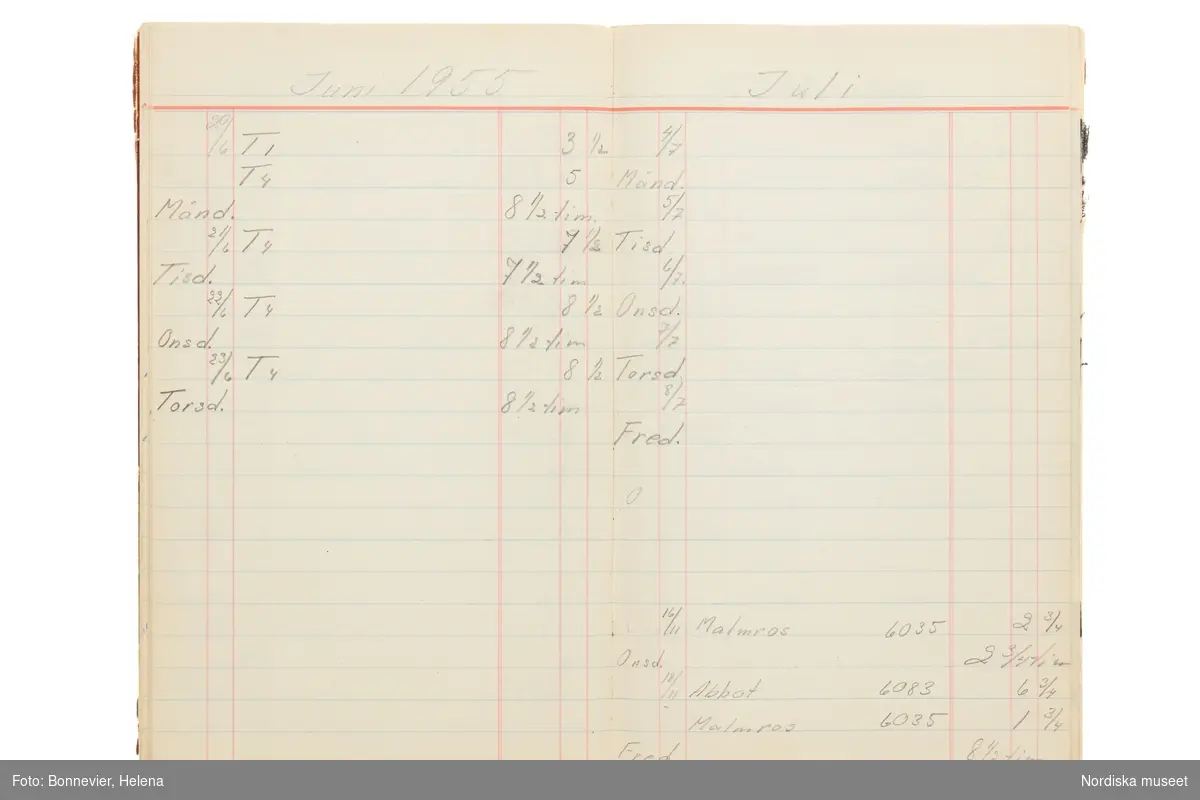 Juni 1955
20/6 T1 3 1/2
T4 5
Månd. 8 1/2 tim.
21/6 T4 7 1/2
Tisd. 7 1/2 tim
22/6 T4 8 1/2
Onsd. 8 1/2 tim
23/6 T4 8 1/2
Torsd. 8 1/2 tim
Juli
4/7
Månd.
5/7
Tisd
6/7
Onsd.
7/7
Torsd.
8/7
Fred.
O
16/11 Malmros 6035 2 3/4
Onsd. 2 3/4 tim
18/11 Abbot 6083 6 3/4
Malmros 6035 1 3/4
Fred 8 1/2 tim
Foto: Bonnevier, Helena
Nordiska museet